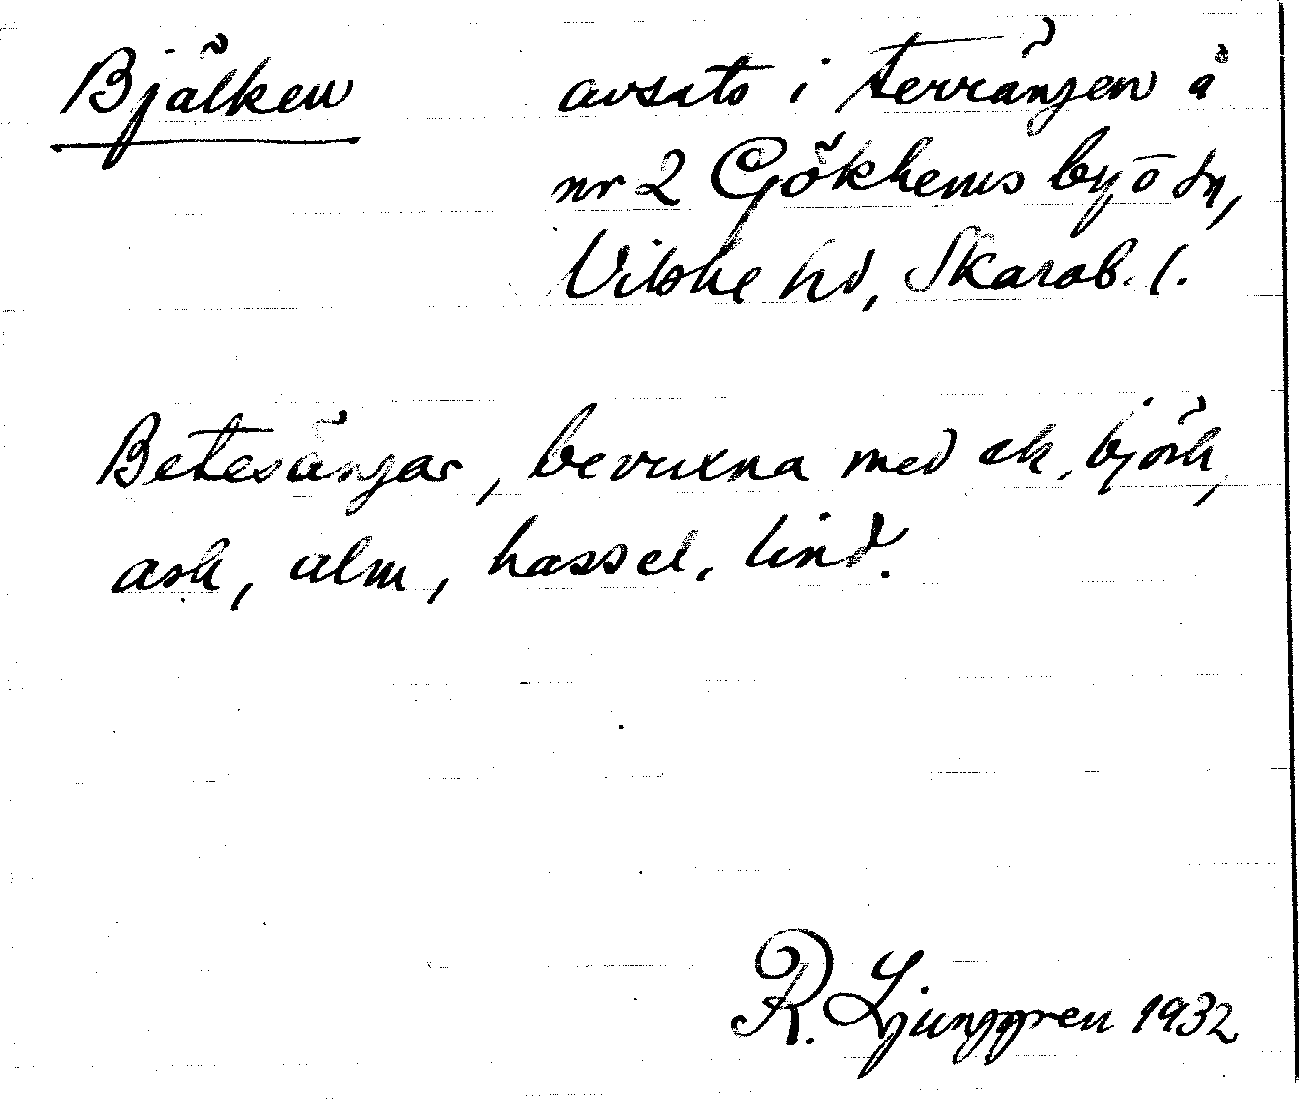 Bjälken avsats i terrängen å
nr 2 Gökhems by, o sn,
Vilske hd, Skarab. l.
Betesängar, bevuxna med ek, björk,
ask, alm, hassel, lind.
R. Ljunggren 1932